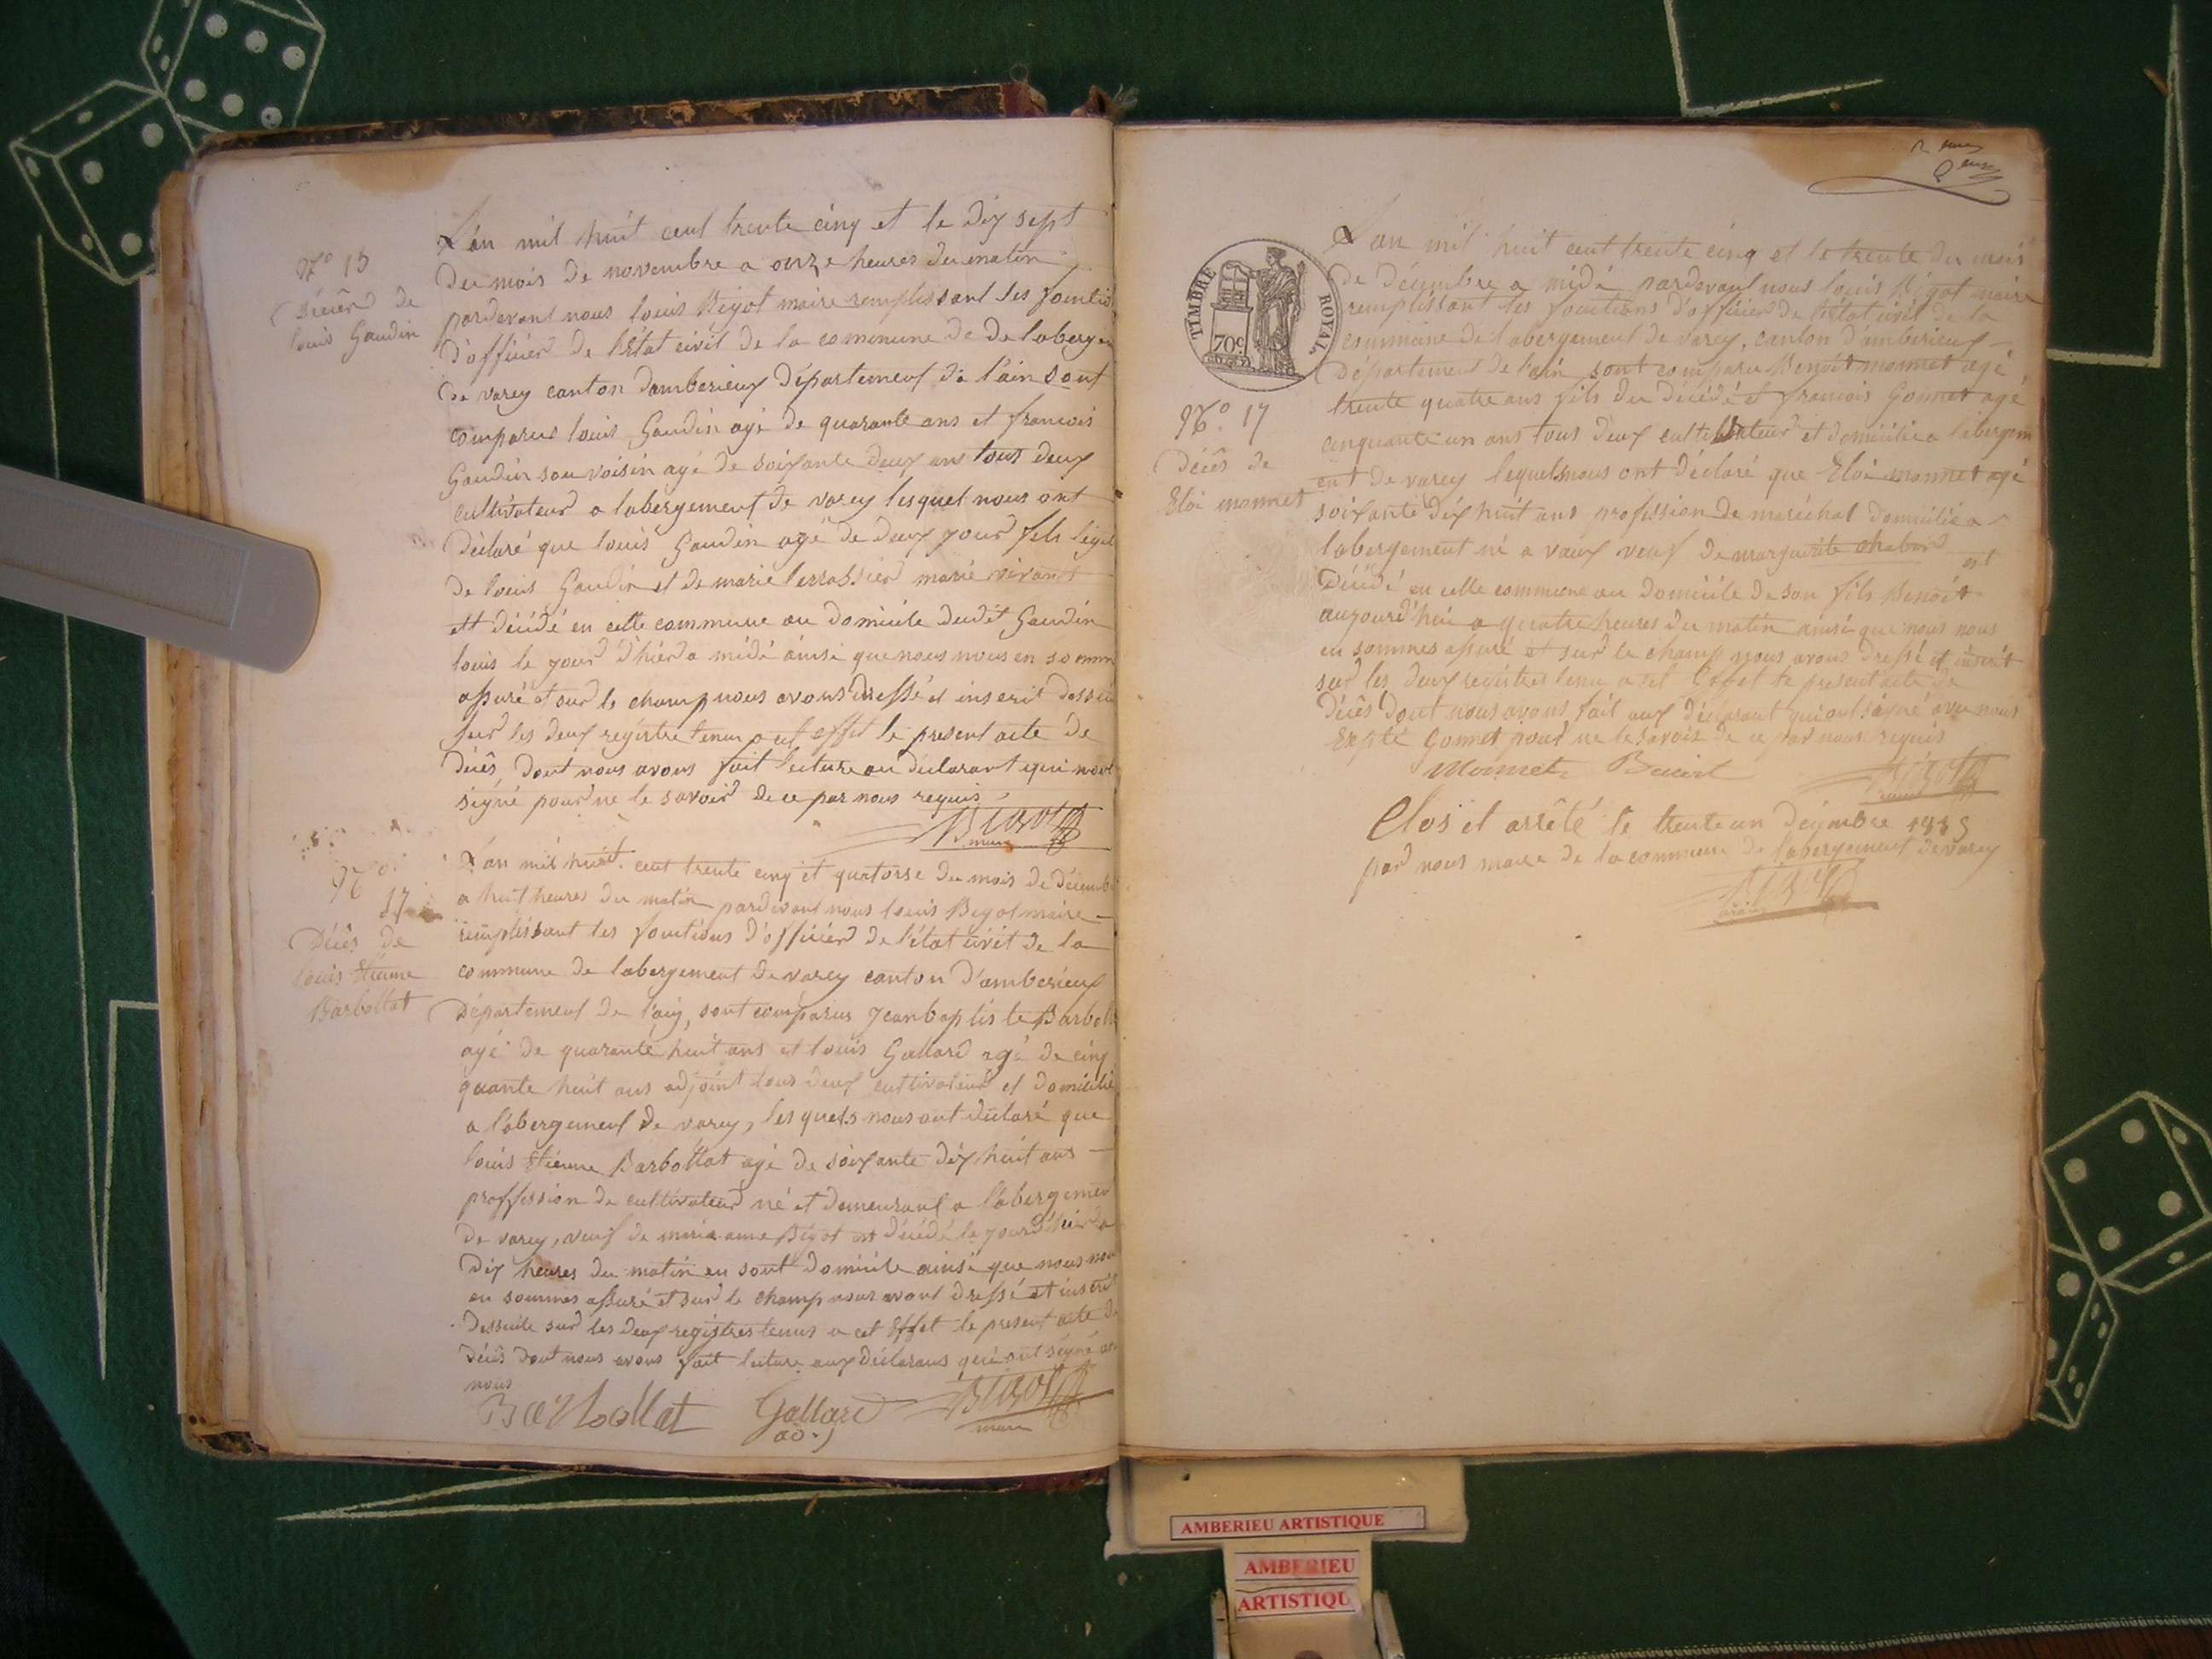 N° 15
Décès de
louis Gaudin
L'an mil huit cent trente cinq et le dix sept
du mois de novembre a onze heures du matin
pardevant nous louis Bigot maire remplissant les fonctio
d'officier de l'état civil de la commune de de labergem
de varey canton d'amberieux département de l'ain sont
comparus louis Gaudin agé de quarante ans et francois
Gaudin son voisin agé de soixante deux ans tous deux
cultivateur a labergement de varey lesquel nous ont
déclaré que louis Gaudin agé de deux jour fils légit
de louis Gaudin et de marie marié vivant
est décédé en cette commune au domicile dudit Gaudin
louis le jour d'hier a midi ainsi que nous nous en somm
assuré et sur le champ nous avons dressé et inscrit
sur les deux registre tenu a cet effet le present acte de
décès, dont nous avons fait lecture au déclarant qui n'ont
signé pour ne le savoir de ce par nous requis
Bigot
maire
N°
17
Décès de
louis Etienne
Barbollat
L'an mil huit cent trente cinq et quatorse du mois de décemb
a huit heures du matin pardevant nous louis Bigot maire
remplissant les fonctions d'officier de l'état civil de la
commune de labergement de varey canton d'amberieux
département de l'ain, sont comparus jeanbaptiste Barboll
agé de quarante huit ans et louis Gallard agé de cinq
quante huit ans adjoint tous deux cultivateur et domicilie
a l'abergement de varey, les quels nous ont déclaré que
louis Etienne Barbollat agé de soixante dix huit ans
proffession de cultivateur né et demeurant a l'abergemen
de varey, veuf de marie anne Bigot est décédé le jour d'hier a
dix heures du matin en sont domicile ainsi que nous nou
en sommes assuré et sur le champ nous avons dressé et inscrit
dessuite sur les deux registres tenus a cet effet le present acte de
décès dont nous avons fait lecture aux déclarans qui ont signé
nous
Barbollat Gallard Bigot
adj maire
TIMBRE ROYAL
70c
N° 17
Décès de
Eloi monnet
L'an mil huit cent trente cinq et le trente du mois
de décembre a midi pardevant nous louis Bigot maire
remplissant les fonctions d'officier de l'état civil de la
commune de labergement de varey, canton d'amberieux
département de l'ain sont comparu Benoit monnet agé
trente quatre ans fils du décédé et francois Gonnet agé
cinquante un ans tous deux cultivateur et domicilie a labergem
ent de varey lequels nous ont déclaré que Eloi monnet agé
soixante dix huit ans profession de maréchal domicilié a
labergement né a vaux veuf de marguerite chabord est
décédé en cette commune au domicile de son fils Benoit
aujourd'hui a quatre heures du matin ainsi que nous nous
en sommes assuré et sur le champ nous avons dressé et inscrit
sur les deux registres tenu a cet effet le present acte de
décès dont nous avons fait aux déclarant qui ont signé avec nous
Exepté Gonnet pour ne le savoir de ce par nous requis
Monnet Benoit Bigot
maire
Clos et arrêté le trente un décembre 1835
par nous maire de la commune de labergement de varey
Bigot
maire
AMBERIEU ARTISTIQUE
AMBERIEU
ARTISTIQU